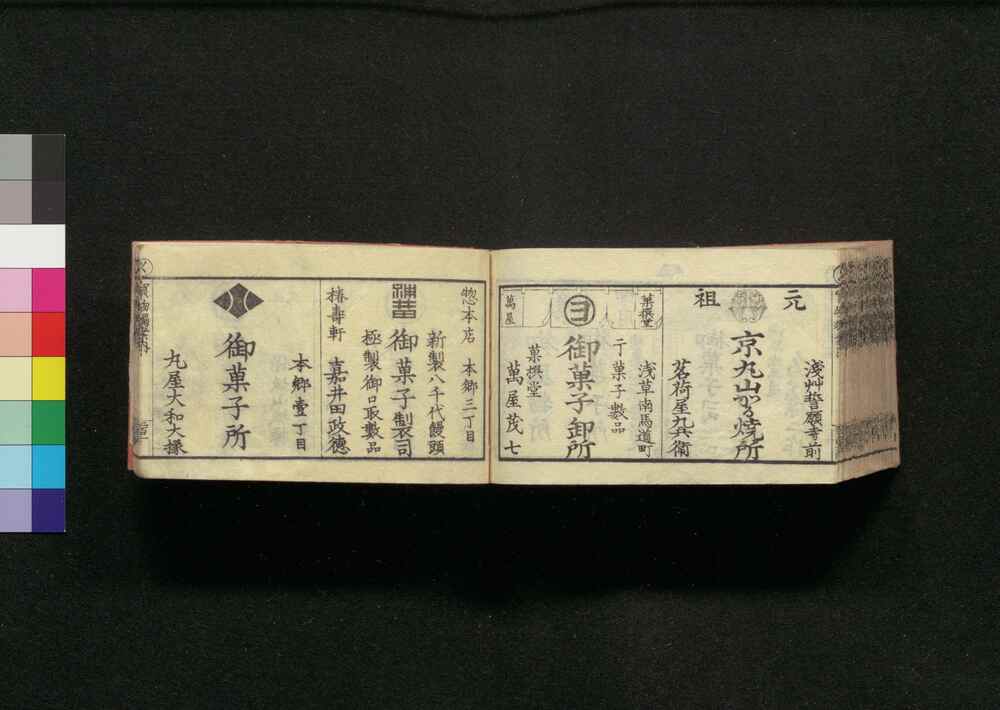 元
祖
淺艸誓願寺前
京丸山かる焼所
茗荷屋九兵衛
菓撰堂
淺草南馬道町
干菓子數品
ヨ
御菓子卸所
菓撰堂
萬屋茂七
萬屋
惣本店 本郷三丁目
新製八千代饅頭
御菓子製司
極製御口取製品
椿壽軒 嘉井田政德
本郷壹丁目
御菓子所
丸屋大和大掾